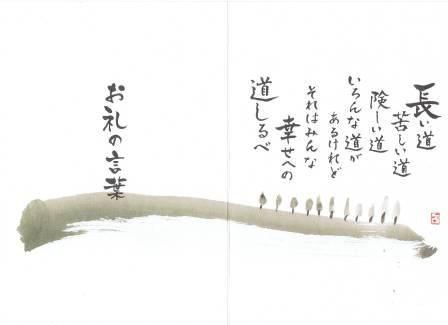 長い道
苦しい道
険しい道
いろんな道が
あるけれど
それはみんな
幸せへの
道しるべ
お礼の言葉